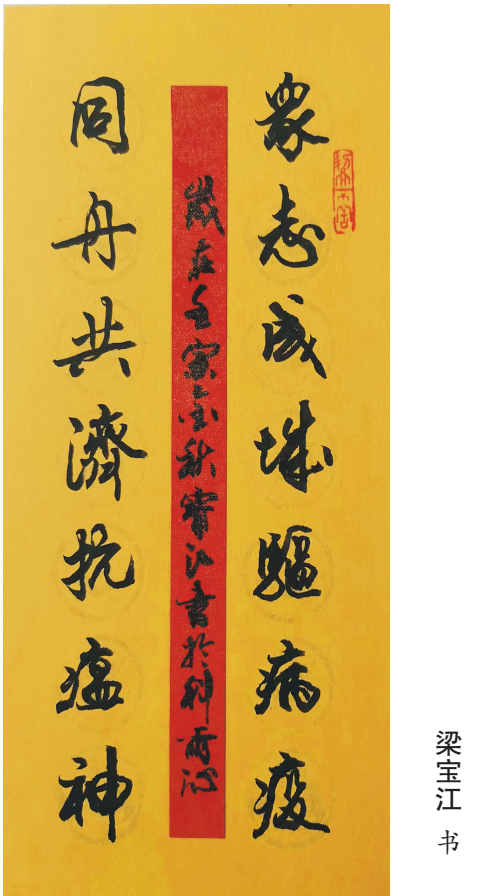 衆志成城驅病疫
歲在壬寅金秋寶江書於科爾沁
同舟共濟抗瘟神
梁宝江 书